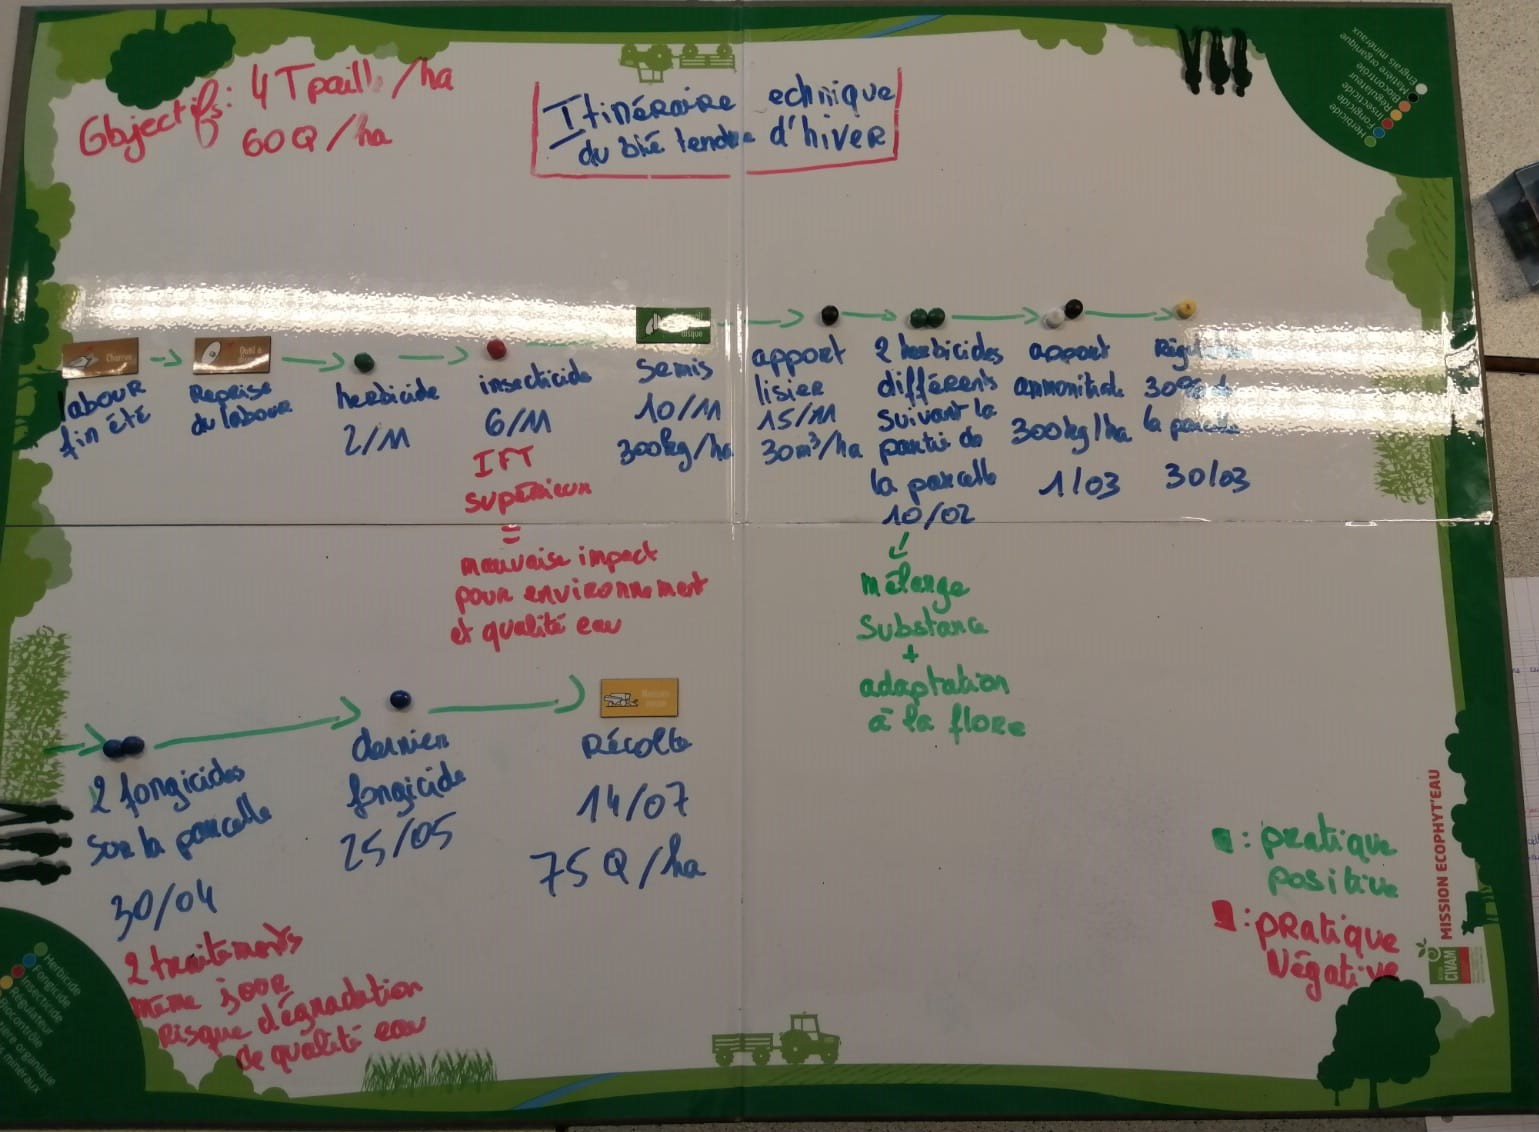 Objectifs: 4 T paill /ha
60 Q /ha
Itinéraire echnique
du blé tendre d'hiver
Herbicide
Fongicide
Insecticide
Régulateur
Biocontrôle
Matière organique
Engrais minéraux
Charrue
labour
fin été
Outil à
Reprise
du labour
herbicide
2/11
insecticide
6/11
IFT
supérieur
=
mauvaise impact
pour environnement
et qualité eau
disque
Semis
10/11
300kg/ha
apport
lisier
15/11
30m³/ha
2 herbicides
différents
suivant la
partie de
la parcelle
10/02
mélange
substance
+
adaptation
à la flore
apport
ammonitrate
300kg/ha
1/03
30% d
la parcelle
30/03
2 fongicides
sur la parcelle
30/04
2 traitements
même jour
risque dégradation
de qualité eau
dernier
fongicide
25/05
Récolte
14/07
75 Q /ha
: pratique
positive
: pratique
Négative
MISSION ECOPHYT'EAU
CIVAM
Herbicide
Fongicide
Insecticide
Régulateur
Biocontrôle
ière organique
minéraux